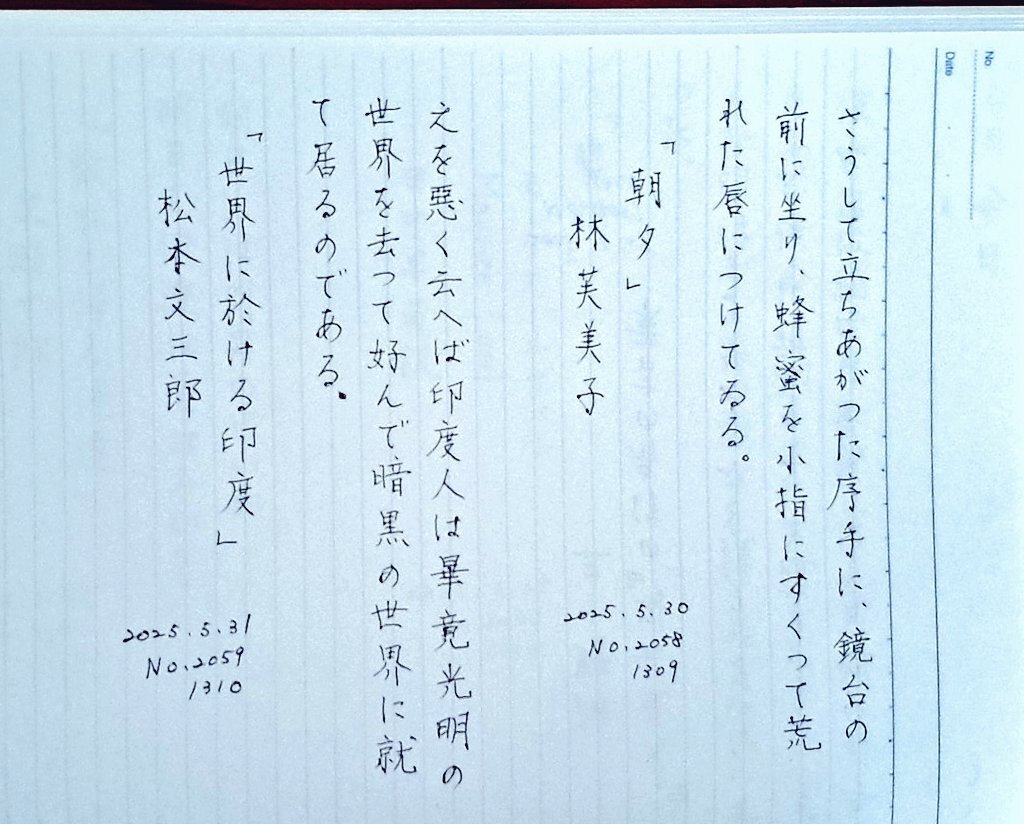 No
Date
さうして立ちあがつた序手に、鏡台の
前に坐り、蜂蜜を小指にすくつて荒
れた唇につけてゐる。
「朝夕」
林芙美子
2025.5.30
No.2058
1309
之を悪く云へば印度人は畢竟光明の
世界を去つて好んで暗黒の世界に就
て居るのである。
「世界に於ける印度」
松本文三郎
2025.5.31
No.2059
1310